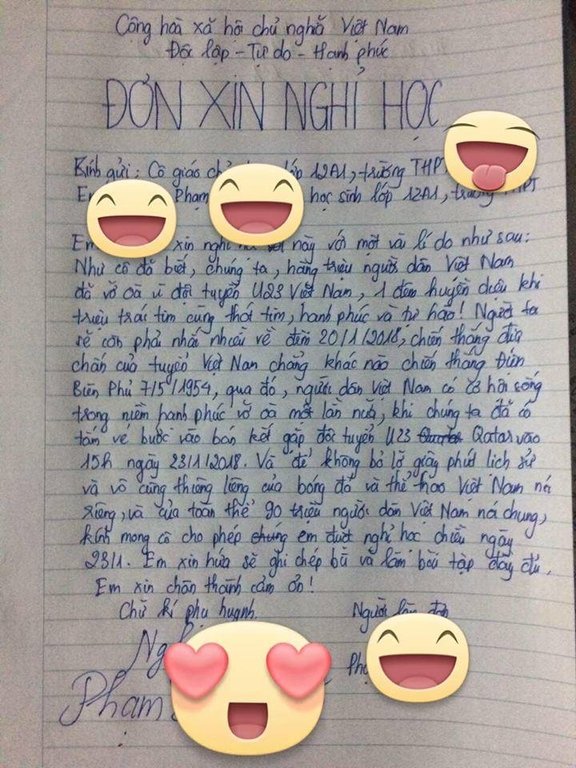 Cộng hoà xã hội chủ nghĩa Việt Nam
Độc lập - Tự do - Hạnh phúc
ĐƠN XIN NGHỈ HỌC
Kính gửi: Cô giáo lớp 12A1, trường THPT
Em Phạm học sinh lớp 12A1, trường THPT
Em xin nghỉ này với một vài lí do như sau:
Như cô đã biết, chúng ta, hàng triệu người dân Việt Nam
đã vỡ oà vì đội tuyển U23 Việt Nam, 1 đêm huyền diệu khi
triệu trái tim cùng thổi tim, hạnh phúc và tự hào! Người ta
sẽ còn phải nhắc nhiều về đêm 20/1/2018, chiến thắng
chấn của tuyển Việt Nam chẳng khác nào chiến thắng Điện
Biên Phủ 7/5/1954, qua đó, người dân Việt Nam có cơ hội sống
trong niềm hạnh phúc vỡ oà một lần nữa, khi chúng ta đã có
tấm vé bước vào bán kết gặp đội tuyển U23 Qatar vào
15h ngày 23/1/2018. Và để không bỏ lỡ giây phút lịch sử
và vô cùng thiêng liêng của bóng đá và thể thao Việt Nam nói
riêng, và của toàn thể 90 triệu người dân Việt Nam nói chung,
kính mong cô cho phép em được nghỉ học chiều ngày
23/1. Em xin hứa sẽ ghi chép bù và làm bài tập đầy đủ.
Em xin chân thành cảm ơn!
Chữ kí phụ huynh Người làm đơn
Phạm